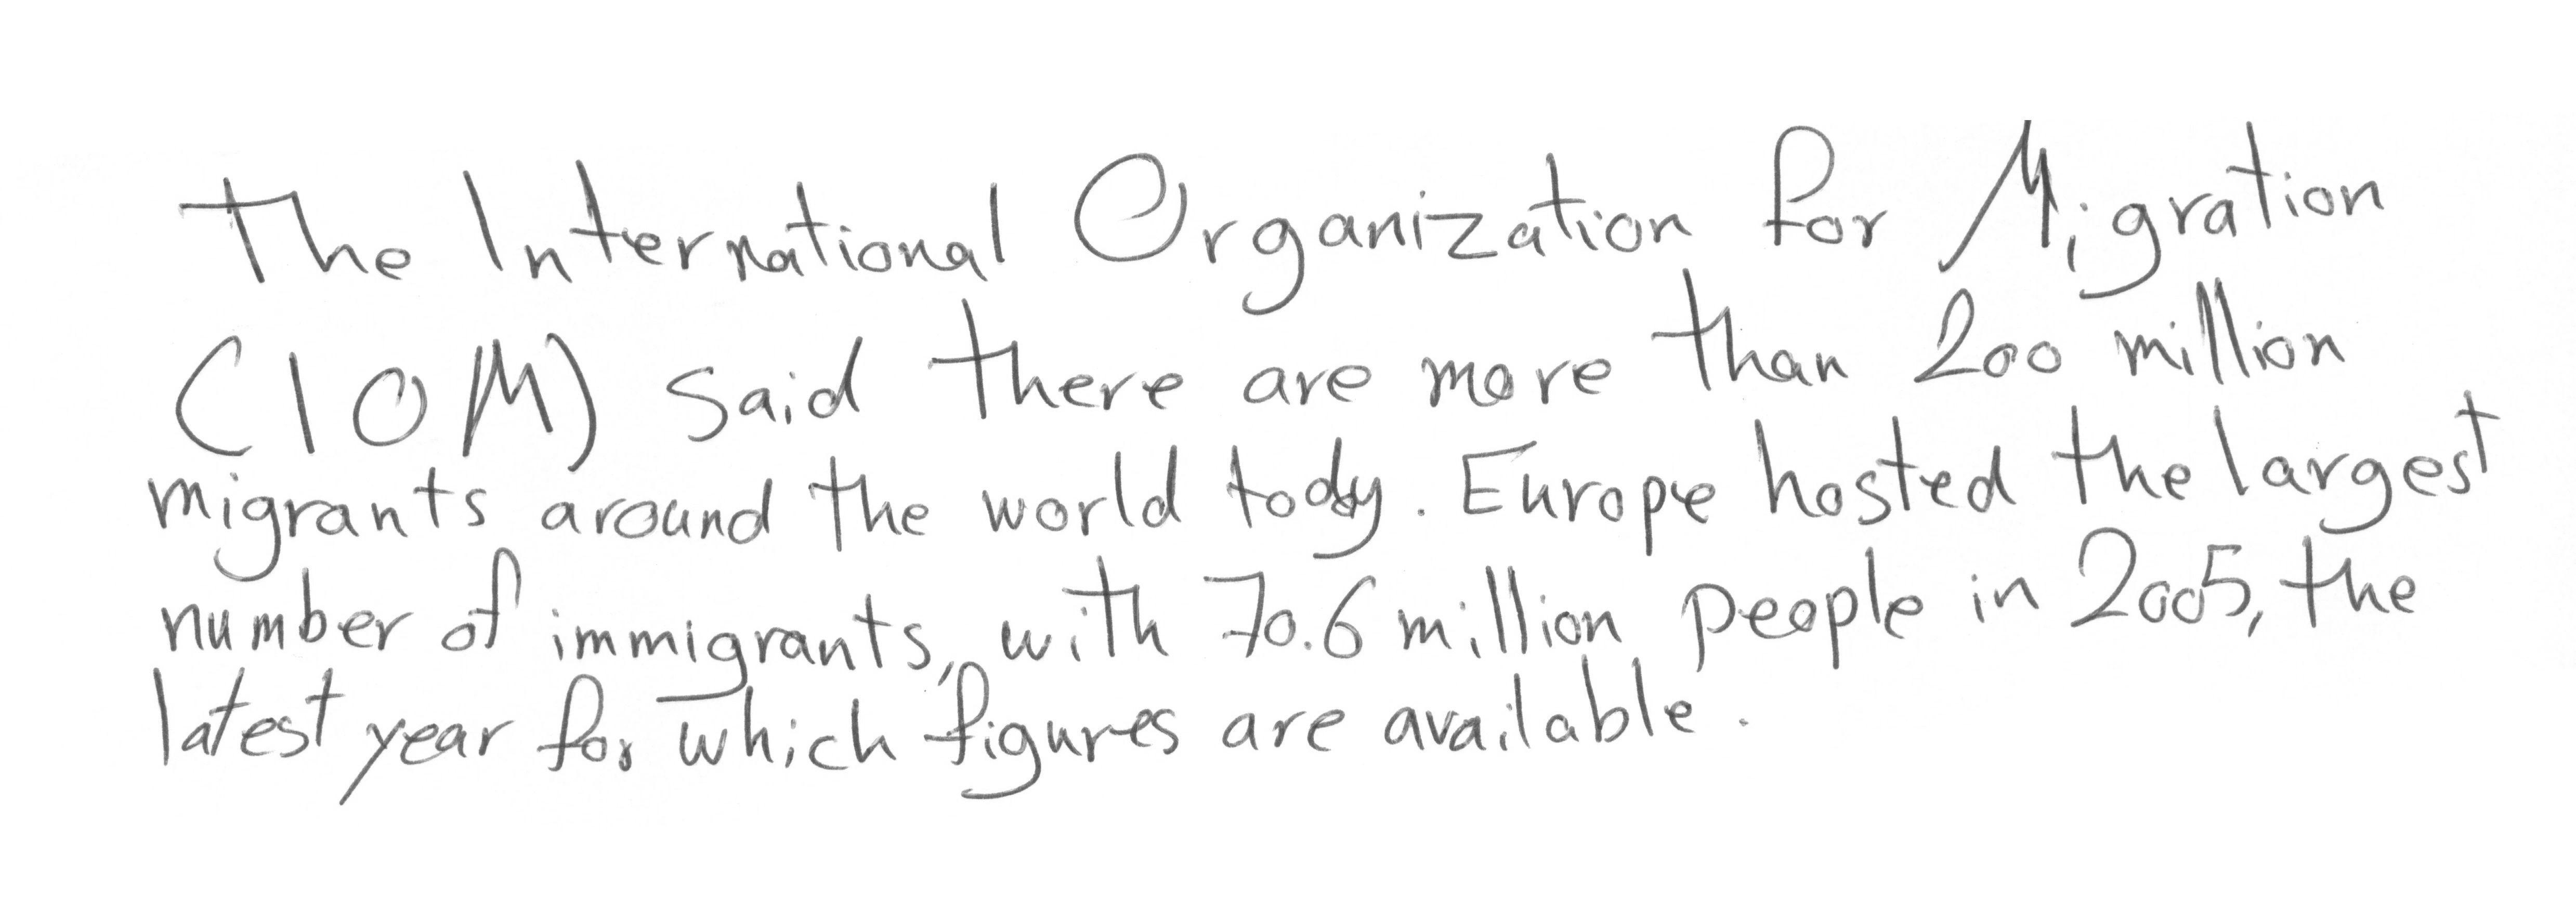 The International Organization for Migration
(IOM) said there are more than 200 million
migrants around the world today. Europe hosted the largest
number of immigrants, with 70.6 million people in 2005, the
latest year for which figures are available.